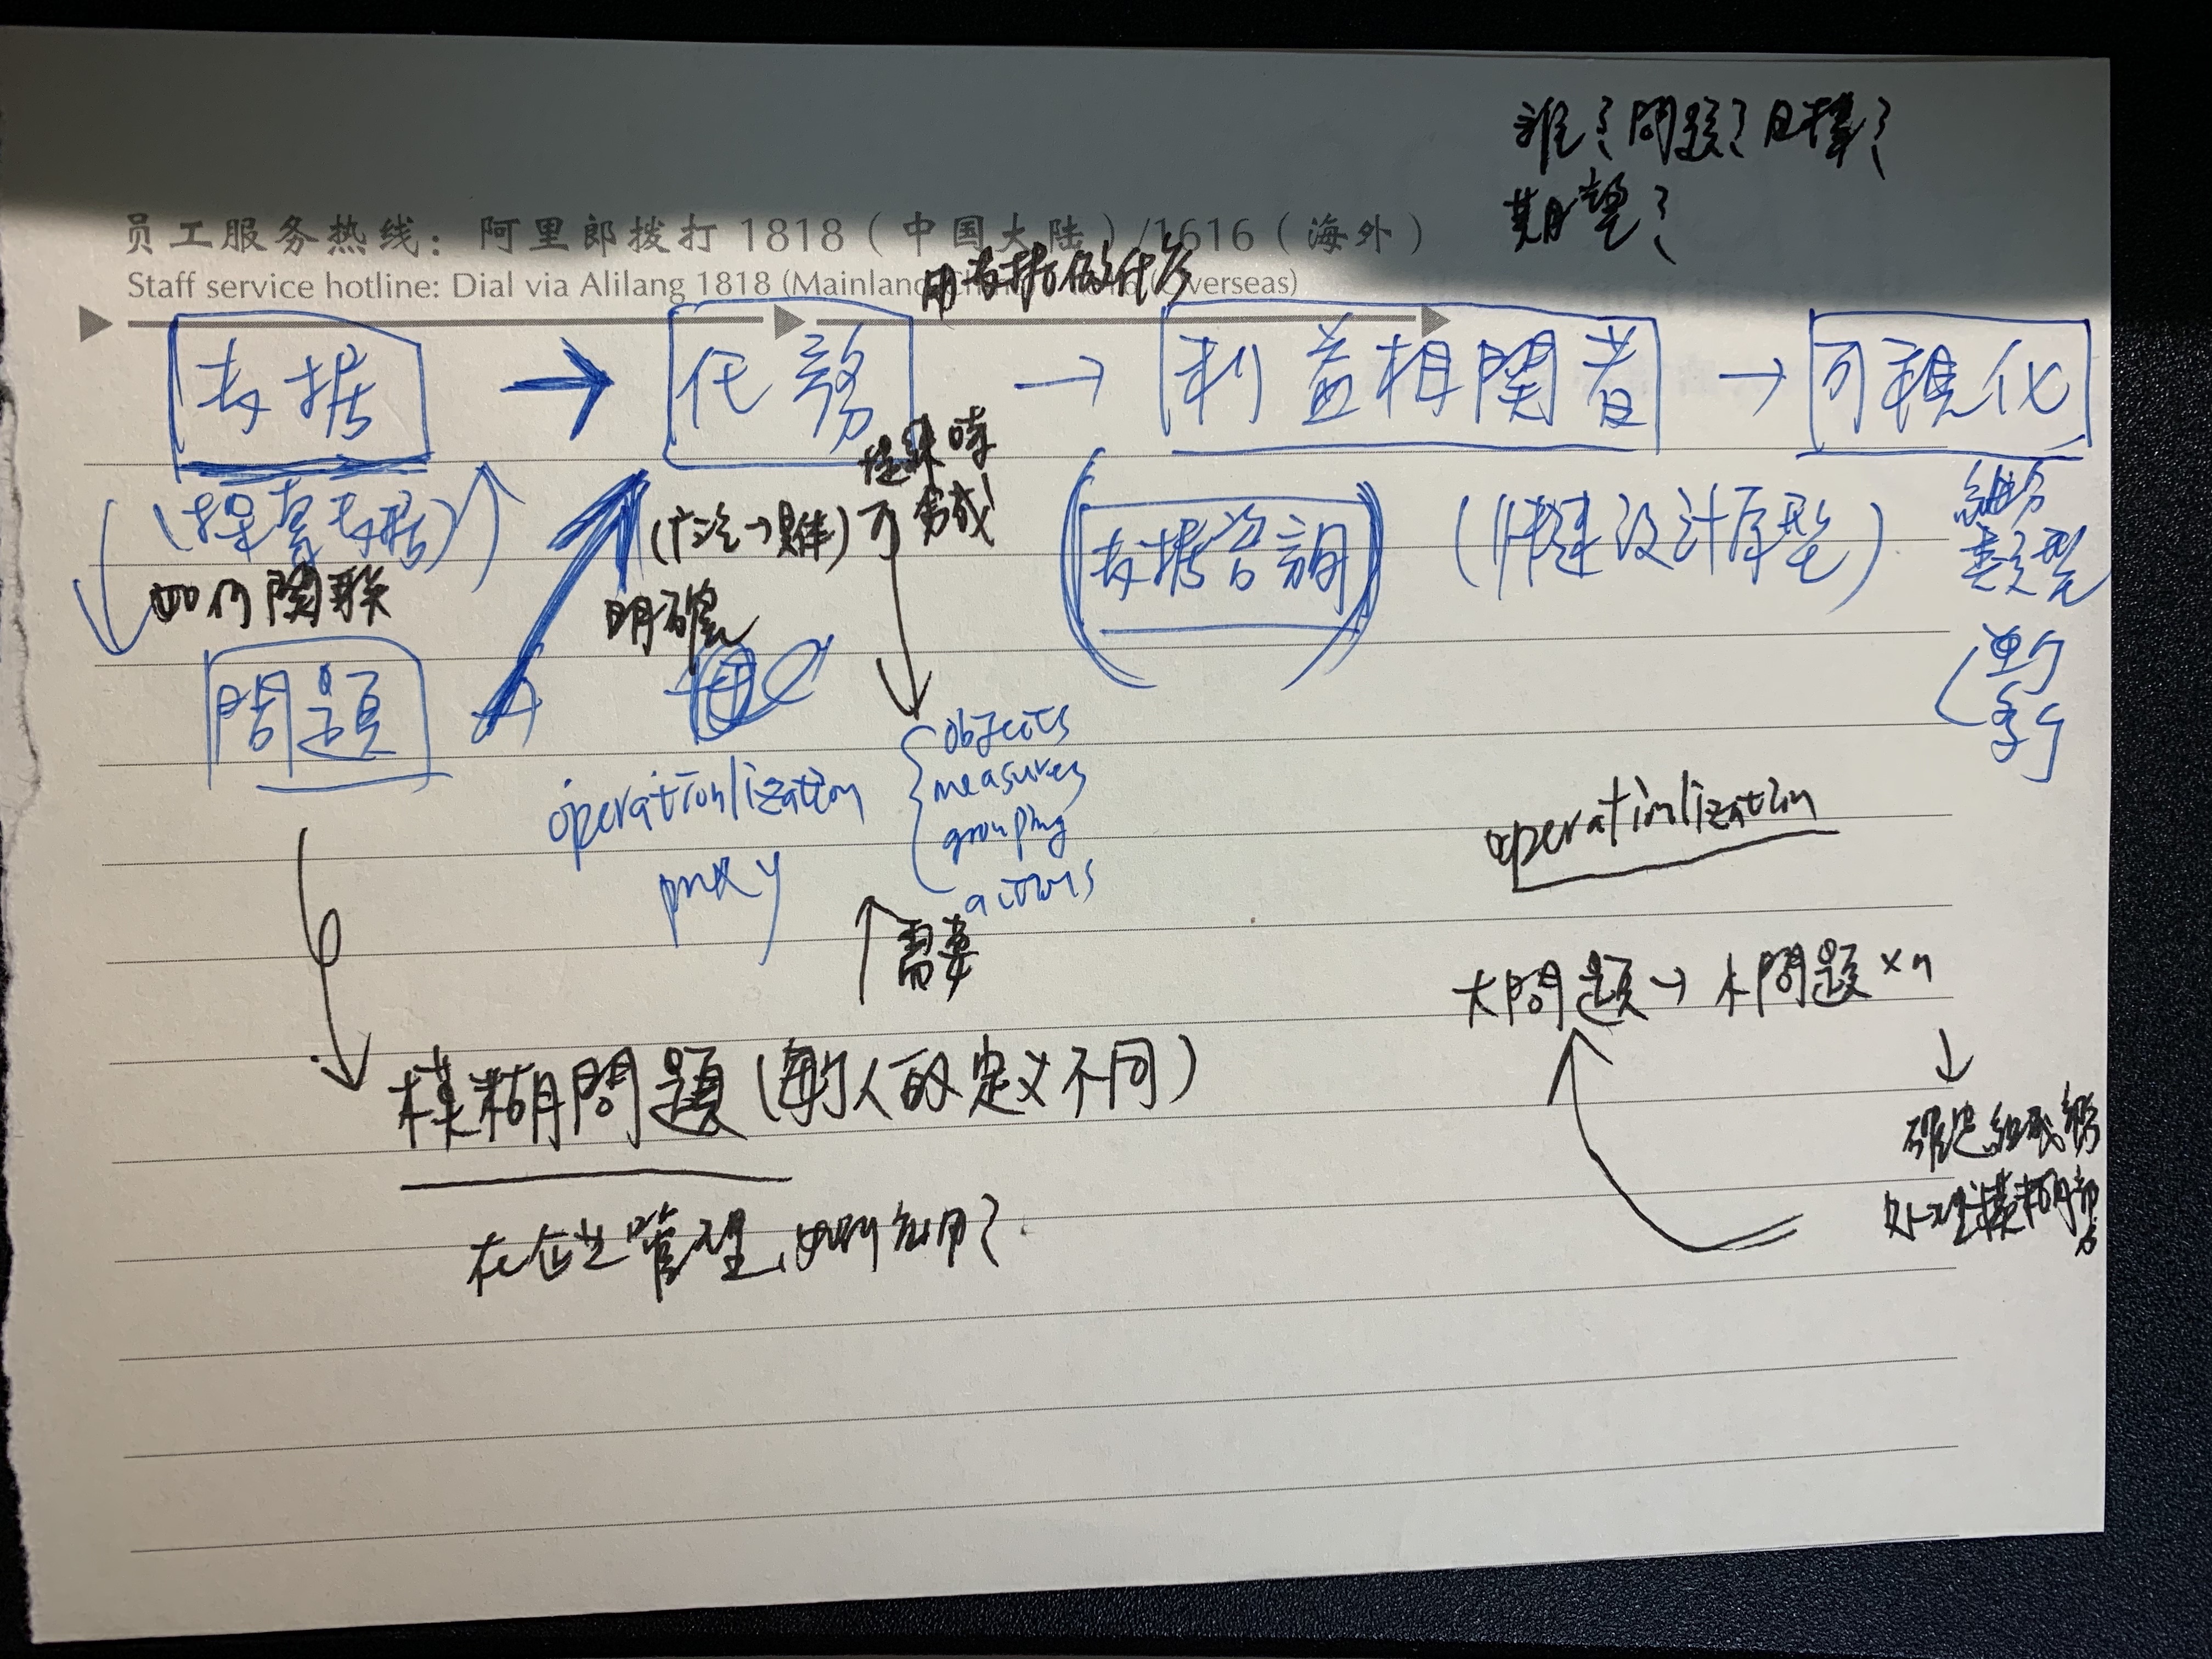 誰？問題？目標？
期望？
员工服务热线：阿里郎拨打 1818（中国大陆）/1616（海外）
Staff service hotline: Dial via Alilang 1818 (Mainland China)/1616 (Overseas)
用数据做什么
数据 → 任務 → 利益相関者 → 可視化
(探索数据)
如何関联
(广泛→具体)
明確
数据咨詢
(快速设计原型)
細分
類型
單个
多个
問題
operationlization
proxy
objects
measures
grouping
actions
需要
operationlization
大問題 → 小問題 × n
確定組成部
处理模糊部分
模糊問題 (每个人的定义不同)
在企业管理，如何知用？